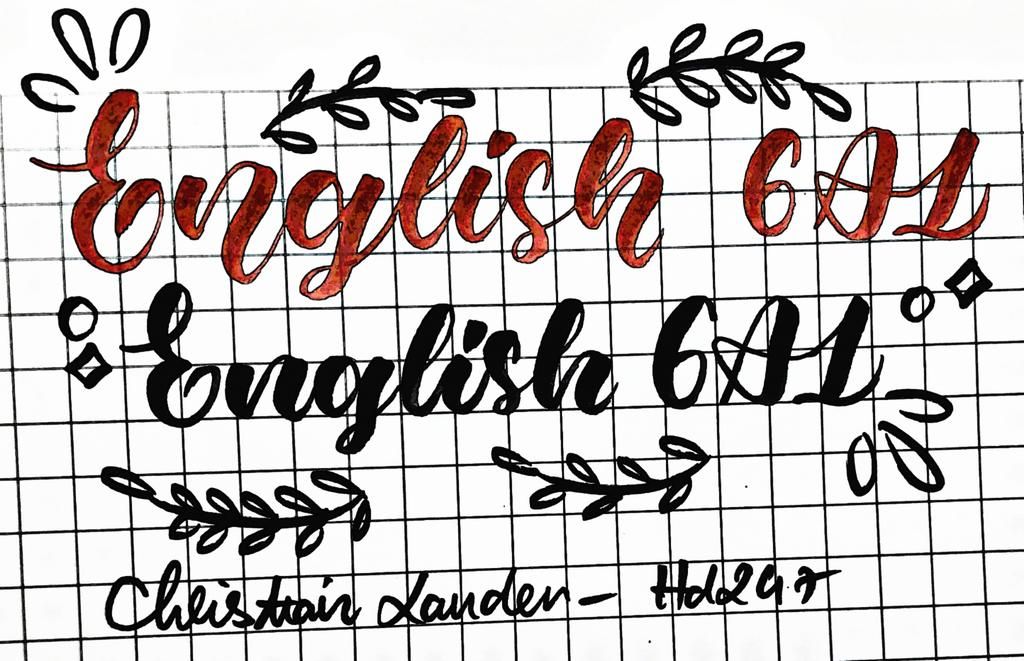 English 6AL
English 6AL
Christian Landen - Hd247